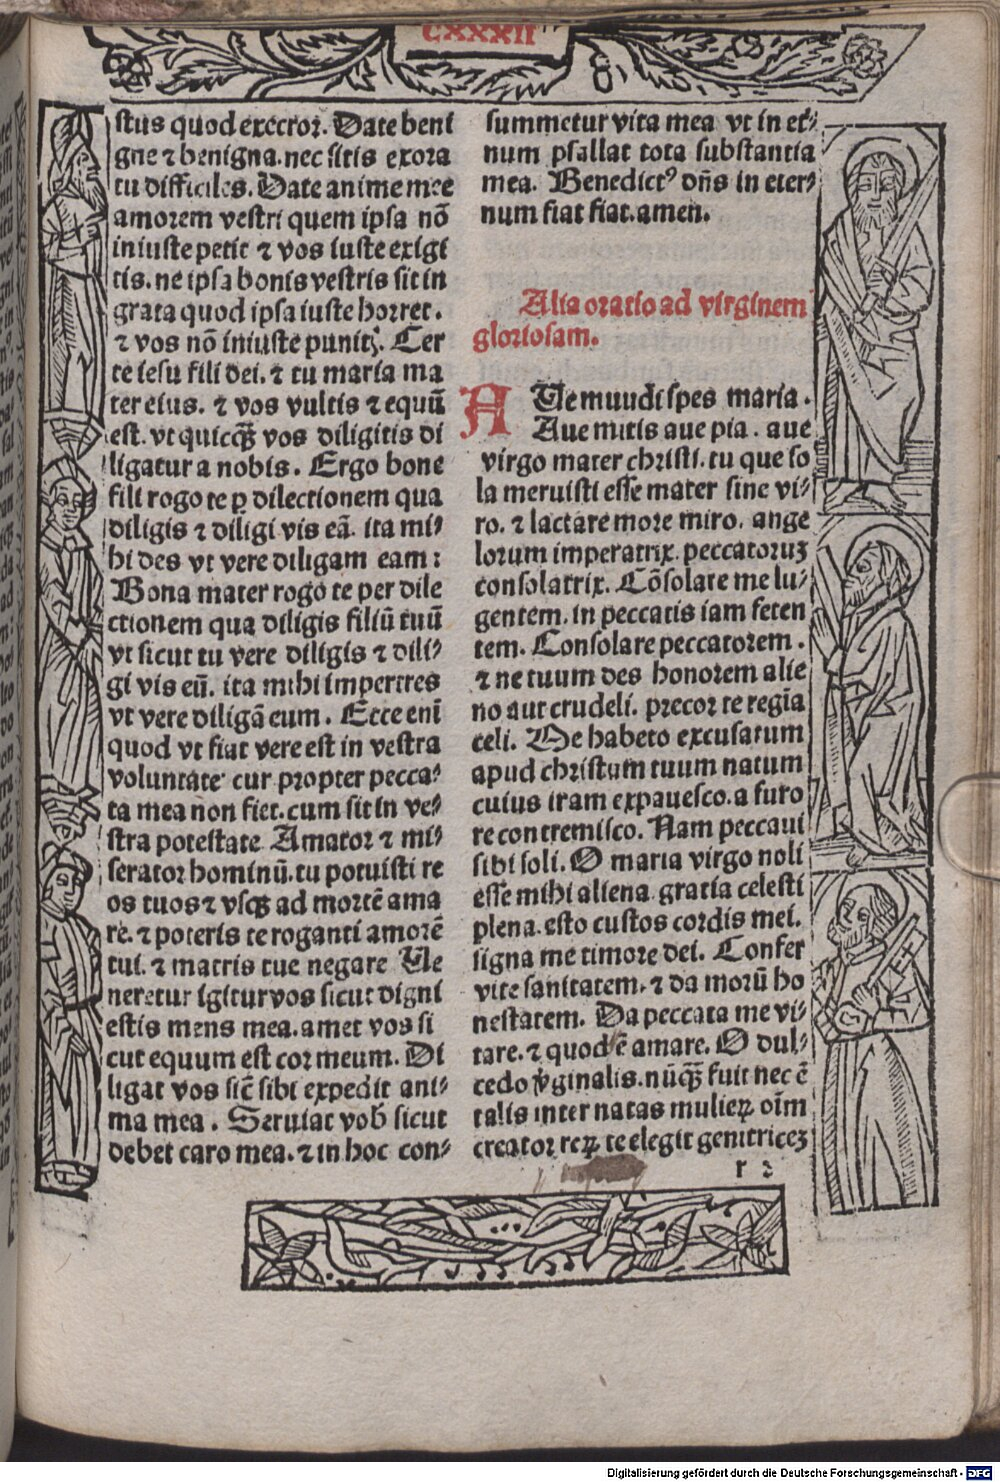 CXXXII
stus quod execror. Date beni
gne ⁊ benigna. nec sitis exora
tu difficiles. Date anime mee
amorem vestri quem ipsa nō
iniuste petit ⁊ vos iuste exigi
tis. ne ipsa bonis vestris sit in
grata quod ipsa iuste horret.
⁊ vos nō iniuste punitꝭ. Cer
te iesu fili dei. ⁊ tu maria ma
ter eius. ⁊ vos vultis ⁊ equū
est. vt quicqꝫ vos diligitis di
ligatur a nobis. Ergo bone
fili rogo te ꝑ dilectionem qua
diligis ⁊ diligi vis eā. ita mi⸗
hi des vt vere diligam eam:
Bona mater rogo te per dile
ctionem qua diligis filiū tuū
vt sicut tu vere diligis ⁊ dili⸗
gi vis eū. ita mihi impetres
vt vere diligā eum. Ecce enī
quod vt fiat vere est in vestra
voluntate cur propter pecca⸗
ta mea non fiet. cum sit in ve⸗
stra potestate Amator ⁊ mi⸗
serator hominū. tu potuisti re
os tuos ⁊ vsqꝫ ad mortē ama
re. ⁊ poteris te roganti amorē
tui. ⁊ matris tue negare Ue
neretur igitur vos sicut digni
estis mens mea. amet vos si
cut equum est cor meum. Di
ligat vos sic̄ sibi expedit ani⸗
ma mea. Seruiat vob̄ sicut
debet caro mea. ⁊ in hoc con⸗
summetur vita mea vt in et̄⸗
num psallat tota substantia
mea. Benedictꝰ dn̄s in eter⸗
num fiat fiat. amen.
Alia oratio ad virginem
gloriosam.
AUe mundi spes maria.
Aue mitis aue pia. aue
virgo mater christi. tu que so
la meruisti esse mater sine vi⸗
ro. ⁊ lactare more miro. ange
lorum imperatrix. peccatoruꝫ
consolatrix. Cōsolare me lu⸗
gentem. in peccatis iam feten
tem. Consolare peccatorem.
⁊ ne tuum des honorem alie
no aut crudeli. precor te regīa
celi. Me habeto excusatum
apud christum tuum natum
cuius iram expauesco. a furo
re contremisco. Nam peccaui
sibi soli. O maria virgo noli
esse mihi aliena gratia celesti
plena. esto custos cordis mei.
signa me timore dei. Confer
vite sanitatem. ⁊ da morū ho
nestatem. Da peccata me vi⸗
tare. ⁊ quod ē amare. O dul⸗
cedo v̄ginalis. nūqꝫ fuit nec ē
talis inter natas mulieꝝ oīm
creator reꝝ te elegit genitriceꝫ
r 2
Digitalisierung gefördert durch die Deutsche Forschungsgemeinschaft - DFG